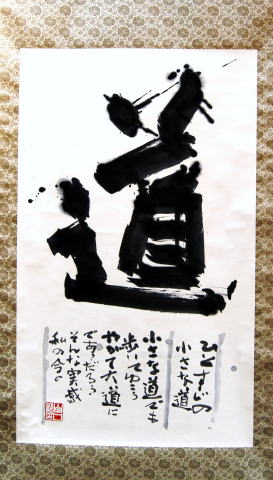 道
ひとすじの
小さな道
小さな道でも
歩いてゆこう
やがて大道に
であうだろう
そんな実感
私の今。